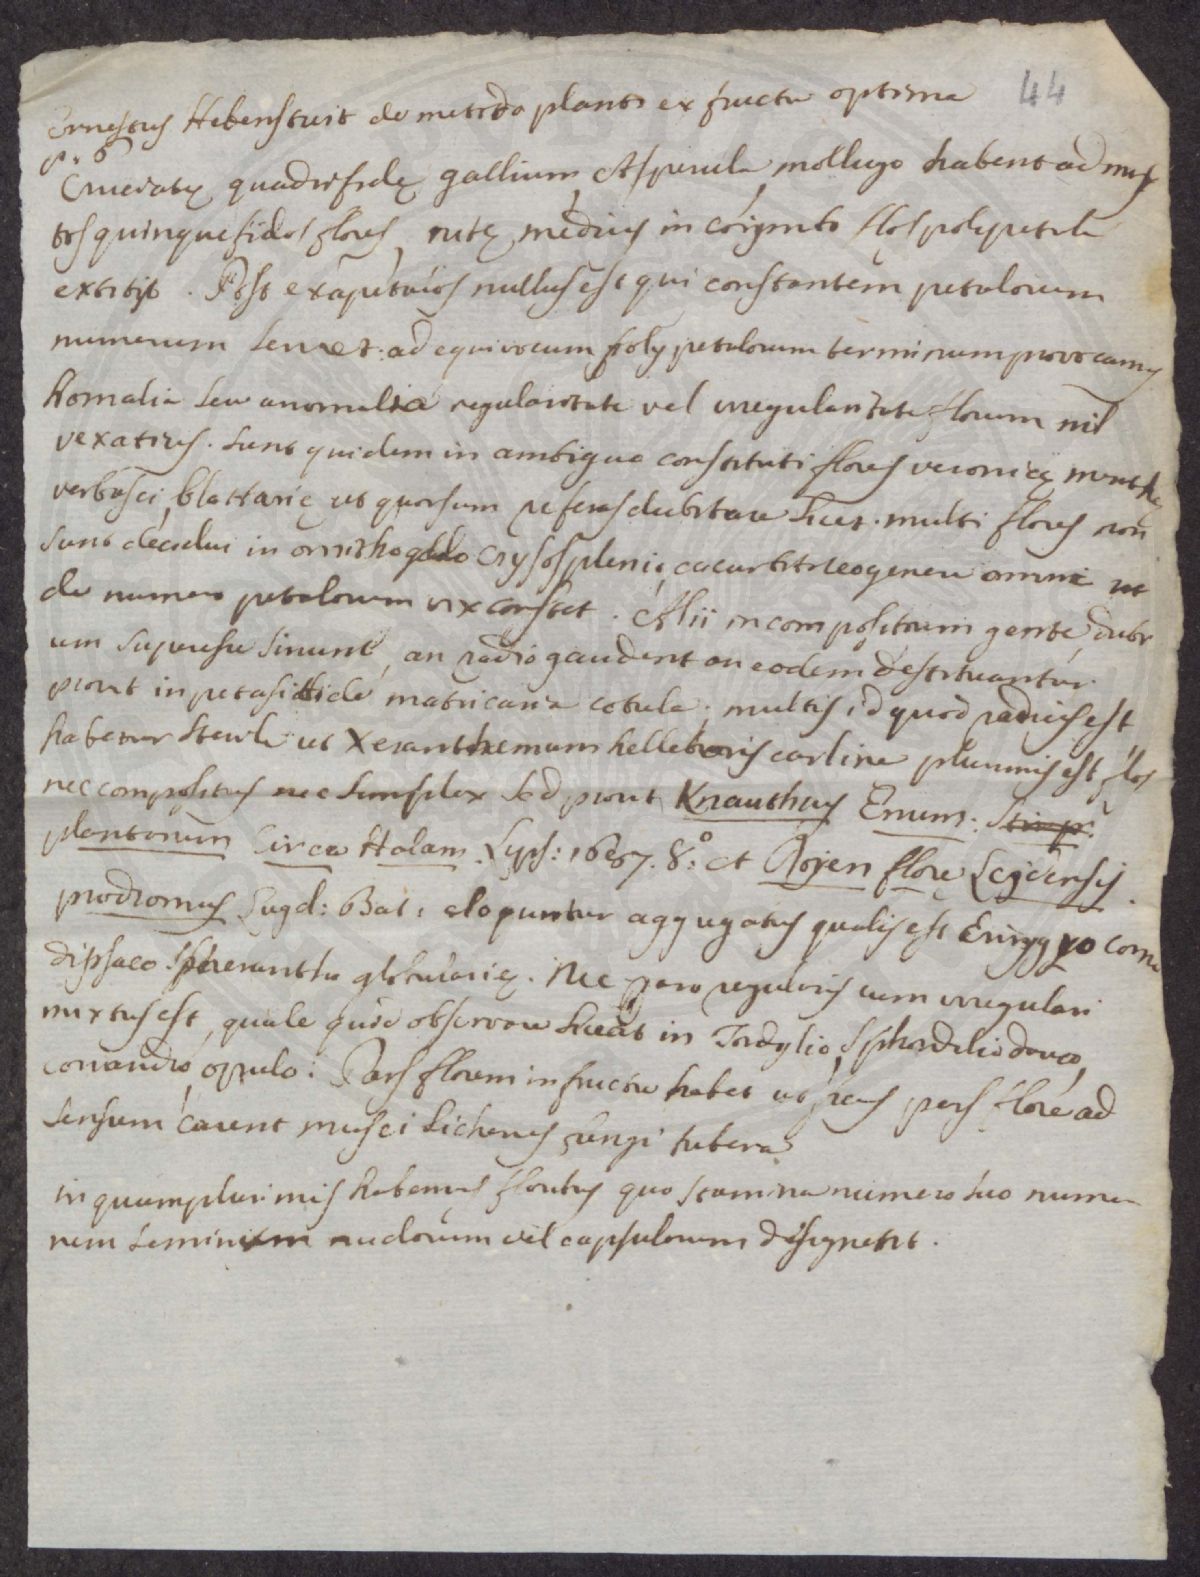 44
Ernestus Hebenstreit de metodo plant: ex fructu optima
p. 6
Cruciatę quadrifidę gallium, Asperula, mollugo habent admix
tos quinquefidos flores, rutę medius in corymbo flos polypetala
extitit. Post exapetalos nullus est qui constantem petalorum
numerum servet: ad equivocum polypetalorum terminum provocamus
homalia seu anomalia regularitate vel irregularitate florum nil
vexatius. sunt quidem in ambiguo constituti flores veronicę menthę
verbasci, blattarię ut quorsum referas dubitare licet. multi flores non
sunt decidui in ornithogalo Crysosplenio, cucurbitaceo genere omni ut
de numero petalorum vix constet. Alii in compositorum gente, dubi
um superesse sinunt, an radio gaudent an eodem destituantur
prout in petasitide matricaria cotula; multis, id quod radius est
habetur sterile ut Xeranthemum helleboris carline plurimis est flos
nec compositus nec simplex sed prout Knauthius Enum: Stirp:
plantarum Circa Halam. Lyps: 1687. 8.° et Royen florę Leydensis
prodromus Lugd: Bat: eloquntur aggregatus qualis est Eringyo
dipsaco Spherantho globularię. Nec raro regularis cum irregulari
mixtus est, quale quid observare liceat in Tordylio, Sphondilio dauco,
coriandro, opulo: Pars florem in fructu habet ut ficus, pars flore ad
sensum carent musci Lichenes fungi tubera.
in quamplurimis habemus floribus quo stamina numero suo nume
rum seminum nudorum vel capsularum designent.